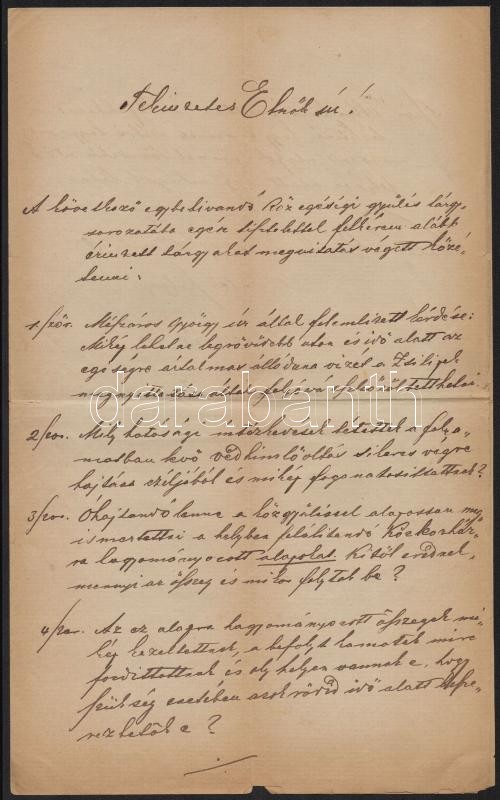 Tekintetes Elnök úr!
A következő egybehivandó Közegésségi gyülés tárgy-
sorozatába egész tisztelettel felkérem alább
érintett tárgyakat megvitatás végett közé-
tenni:
1./ször. Mészáros György úr által felemlitett kérdése:
Mikép lehetne legrövidebb uton és idő alatt az
egésségre ártalmas állódana vizet a Zsilipek
által
darabanth
2/szor. Mely hatósági intézkedések tétettek a folya-
matban levő védhimlőoltás sikeres végre
hajtása céljából és mikép foganatosittattak?
3/szor. Óhajtandó lenne a közgyüléssel alaposan meg
ismertetni a helyben felállitandó Közkorház-
ra hagyományozott alapokat. Kitől erednek,
mennyi az összeg és mikor folytak be?
4/szer. Az ez alapra hagyományozott összegek mi-
kép kezeltetnek, a befolyt kamatok mire
fordittattak és oly helyen vannak e, hogy
szükség esetében azok rövid idő alatt
e?